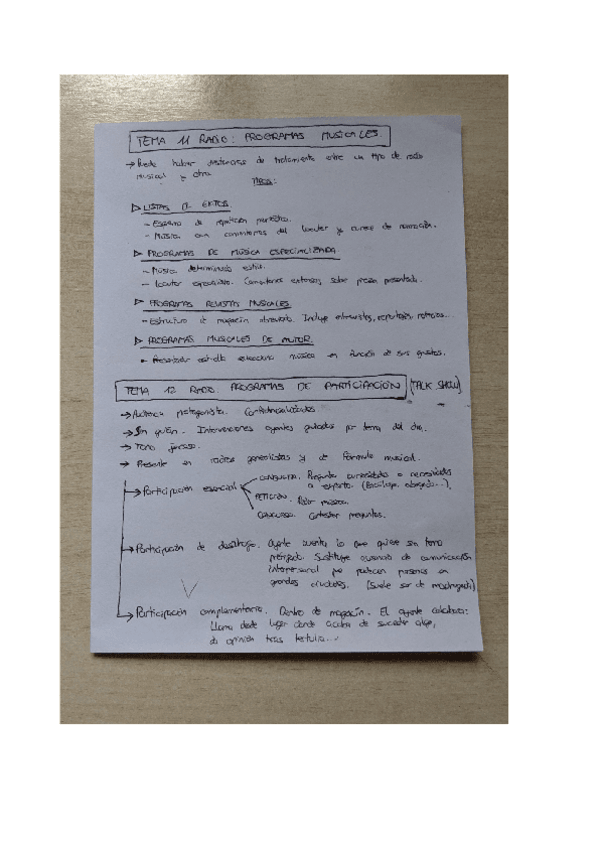 TEMA 11 RADIO: PROGRAMAS MUSICALES.
→ Puede haber diferencias de tratamiento entre un tipo de radio
musical y otra.
TIPOS:
▷ LISTAS DE ÉXITOS.
- Esquema de repetición periódica.
- Música con comentarios del locutor y carece de narración.
▷ PROGRAMAS DE MÚSICA ESPECIALIZADA
- Música determinado estilo.
- Locutor especialista. Comentarios extensos sobre pieza presentada.
▷ PROGRAMAS REVISTAS MUSICALES.
- Estructura de magacín abreviado. Incluye entrevistas, reportajes, noticias...
▷ PROGRAMAS MUSICALES DE AUTOR.
- Presentador estrella selecciona música en función de sus gustos.
TEMA 12 RADIO. PROGRAMAS DE PARTICIPACIÓN (TALK SHOW)
→ Audiencia protagonista. Confidencialidades.
→ Sin guión. Intervenciones oyentes guiados por tema del día.
→ Tono jocoso.
→ Presente en radios generalistas y de fórmula musical.
→ Participación esencial
CONSULTA. Pregunta curiosidades o necesidades
a experto. (Psicólogo, abogado...).
PETICIÓN. Pedir música.
CONCURSO. Contestar preguntas.
→ Participación de desahogo. Oyente cuenta lo que quiere sin tema
prefijado. Sustituye ausencia de comunicación
interpersonal que padecen personas en
grandes ciudades. (Suele ser de madrugada)
→ Participación complementaria. Dentro de magacín. El oyente colabora:
llama desde lugar donde acaba de suceder algo,
da opinión tras tertulia...